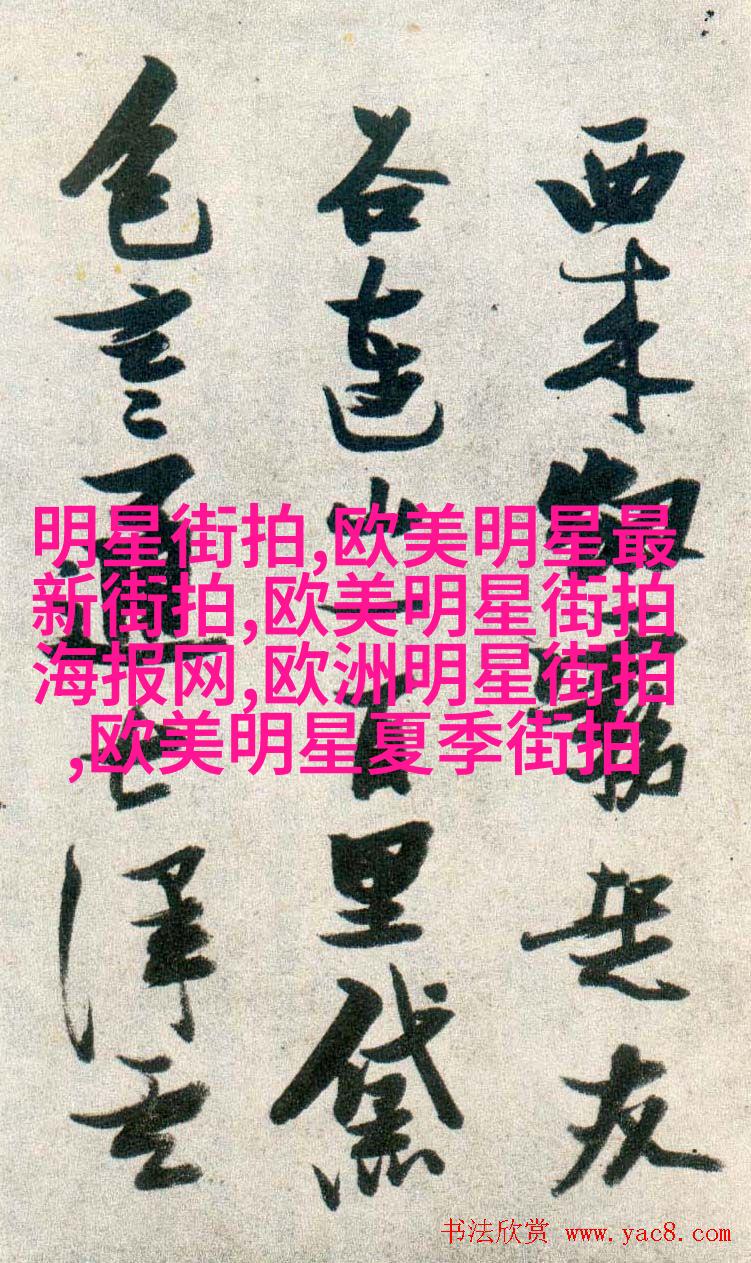 西来是友
谷連山百里黛
色言通七澤云
明星街拍,欧美明星最
新街拍,欧美明星街拍
海报网,欧洲明星街拍
,欧美明星夏季街拍
书法欣赏 www.yac8.com